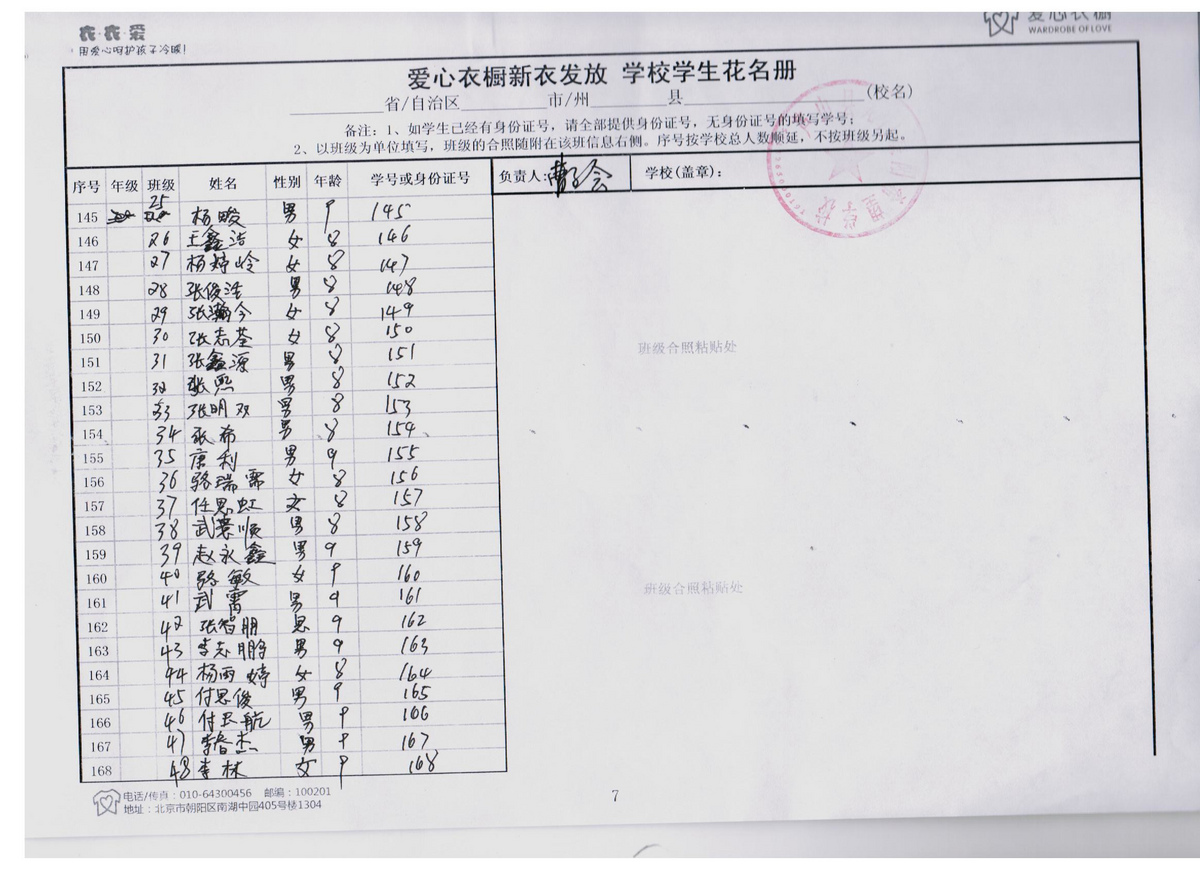 衣·衣·爱
用爱心呵护孩子冷暖!
爱心衣橱
WARDROBE OF LOVE
爱心衣橱新衣发放 学校学生花名册
省/自治区 市/州 县 (校名)
备注:1、如学生已经有身份证号,请全部提供身份证号,无身份证号的填写学号;
2、以班级为单位填写,班级的合照随附在该班信息右侧。序号按学校总人数顺延,不按班级另起。
序号 年级 班级 姓名 性别 年龄 学号或身份证号 负责人: 学校(盖章):
145 25 杨晙 男 9 145
146 26 王鑫浩 女 8 146
147 27 杨婷岭 女 8 147
148 28 张俊浩 男 8 148
149 29 张瀚今 女 8 149
150 30 张志荃 女 8 150
151 31 张鑫源 男 8 151
152 32 张熙 男 8 152
153 33 张明双 男 8 153
154 34 张希 男 8 154
155 35 唐利 男 9 155
156 36 骆瑞霈 女 8 156
157 37 任思虹 女 8 157
158 38 武 顺 男 8 158
159 39 赵永鑫 男 9 159
160 40 骆敏 女 9 160
161 41 武霄 男 9 161
162 42 张智朋 男 9 162
163 43 李志鹏 男 9 163
164 44 杨雨婷 女 8 164
165 45 付思俊 男 9 165
166 46 付玉航 男 9 166
167 47 李春杰 男 9 167
168 48 李林 女 9 168
班级合照粘贴处
班级合照粘贴处
电话/传真:010-64300456 邮编:100201
地址:北京市朝阳区南湖中园405号楼1304
7